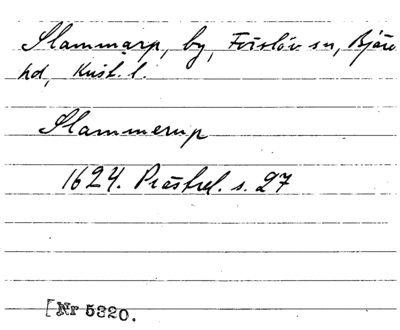 Slammarp, by, Förslöv sn, Bjäre
hd, Krist. l.
Slammerup
1624. Prästrel. s. 27
[Nr 5820.